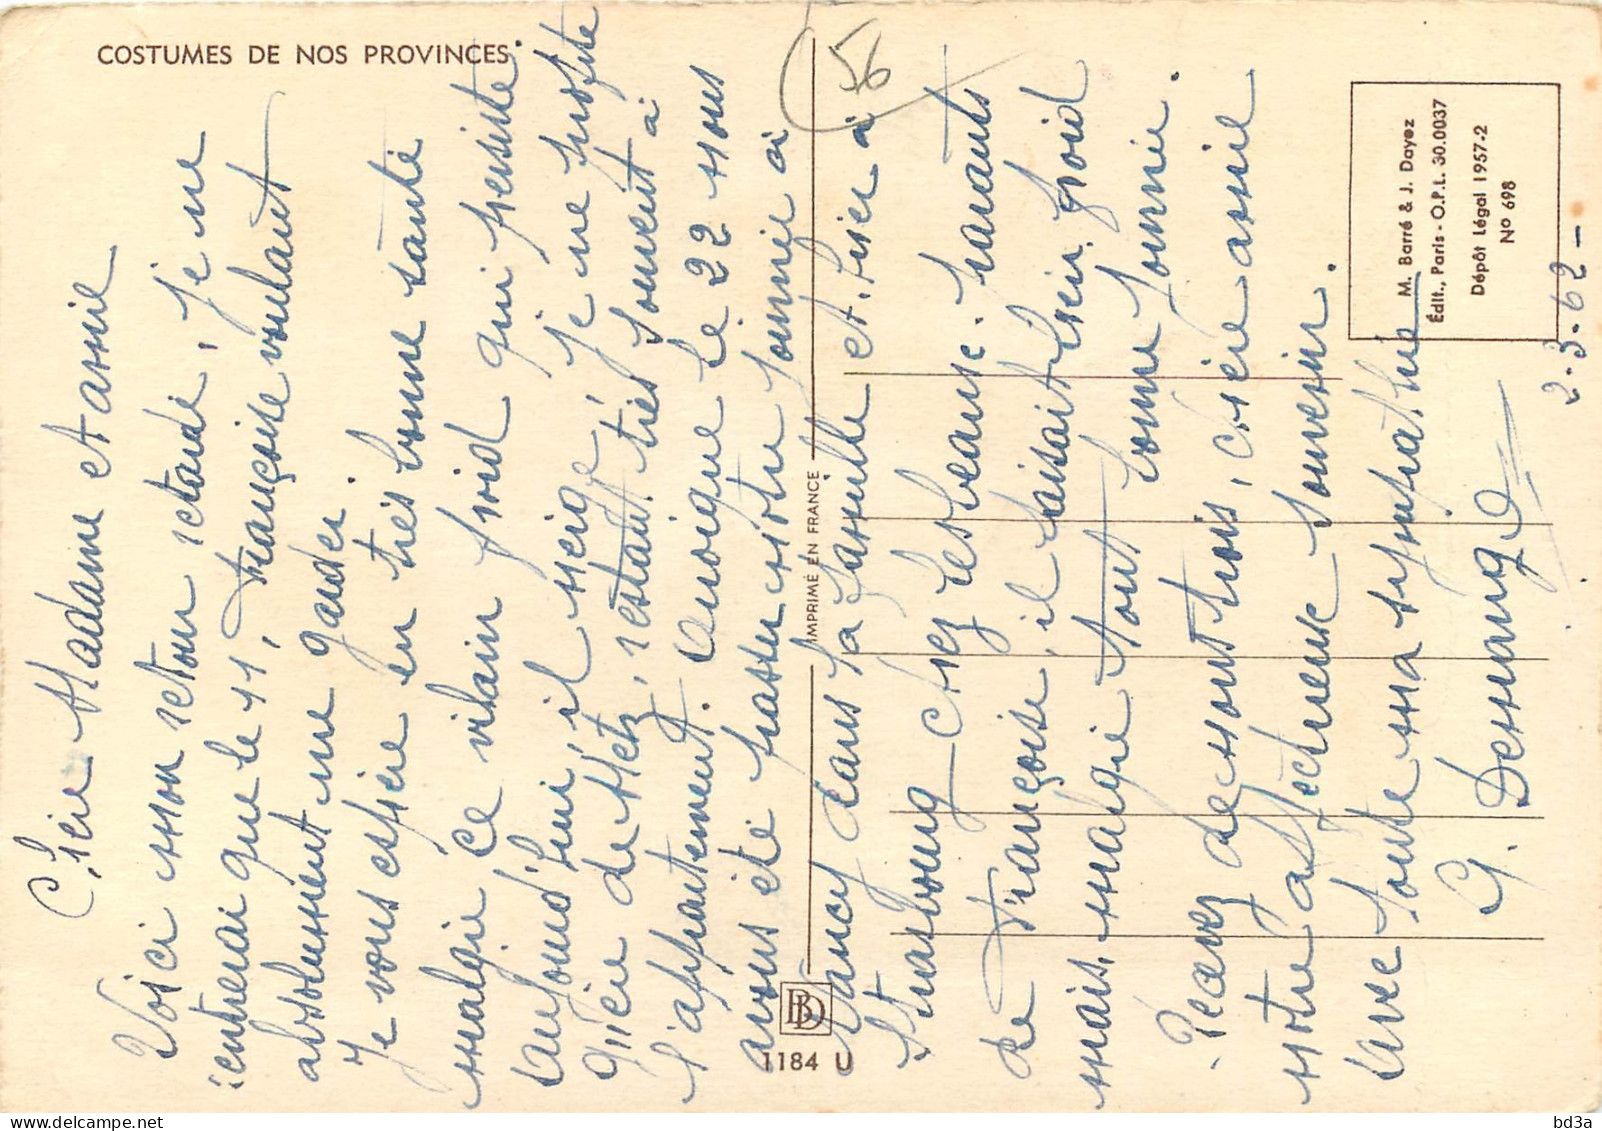 COSTUMES DE NOS PROVINCES
56
Chère Madame et amie
Voici mon retour retardé, je ne
rentrerai que le 11, Françoise voulant
absolument me garder.
Je vous espère en très bonne santé
malgré ce vilain froid qui persiste.
aujourd'hui, il neige, je ne profite
guère de Metz, restant très souvent à
l'appartement. Lorsque le 22 nous
avons été passer notre journée à
Nancy dans la famille et hier à
Strasbourg chez les beaux-parents
de Françoise, il faisait bien froid
mais malgré tout bonne journée.
Recevez de nous trois, chère amie
notre affectueux souvenir.
avec toute ma sympathie
G.
2.3.62-
IMPRIMÉ EN FRANCE
BD
1184 U
M. Barré & J. Dayez
Édit., Paris - O.P.L. 30.0037
Dépôt Légal 1957-2
No 698
delcampe.net
bd3a